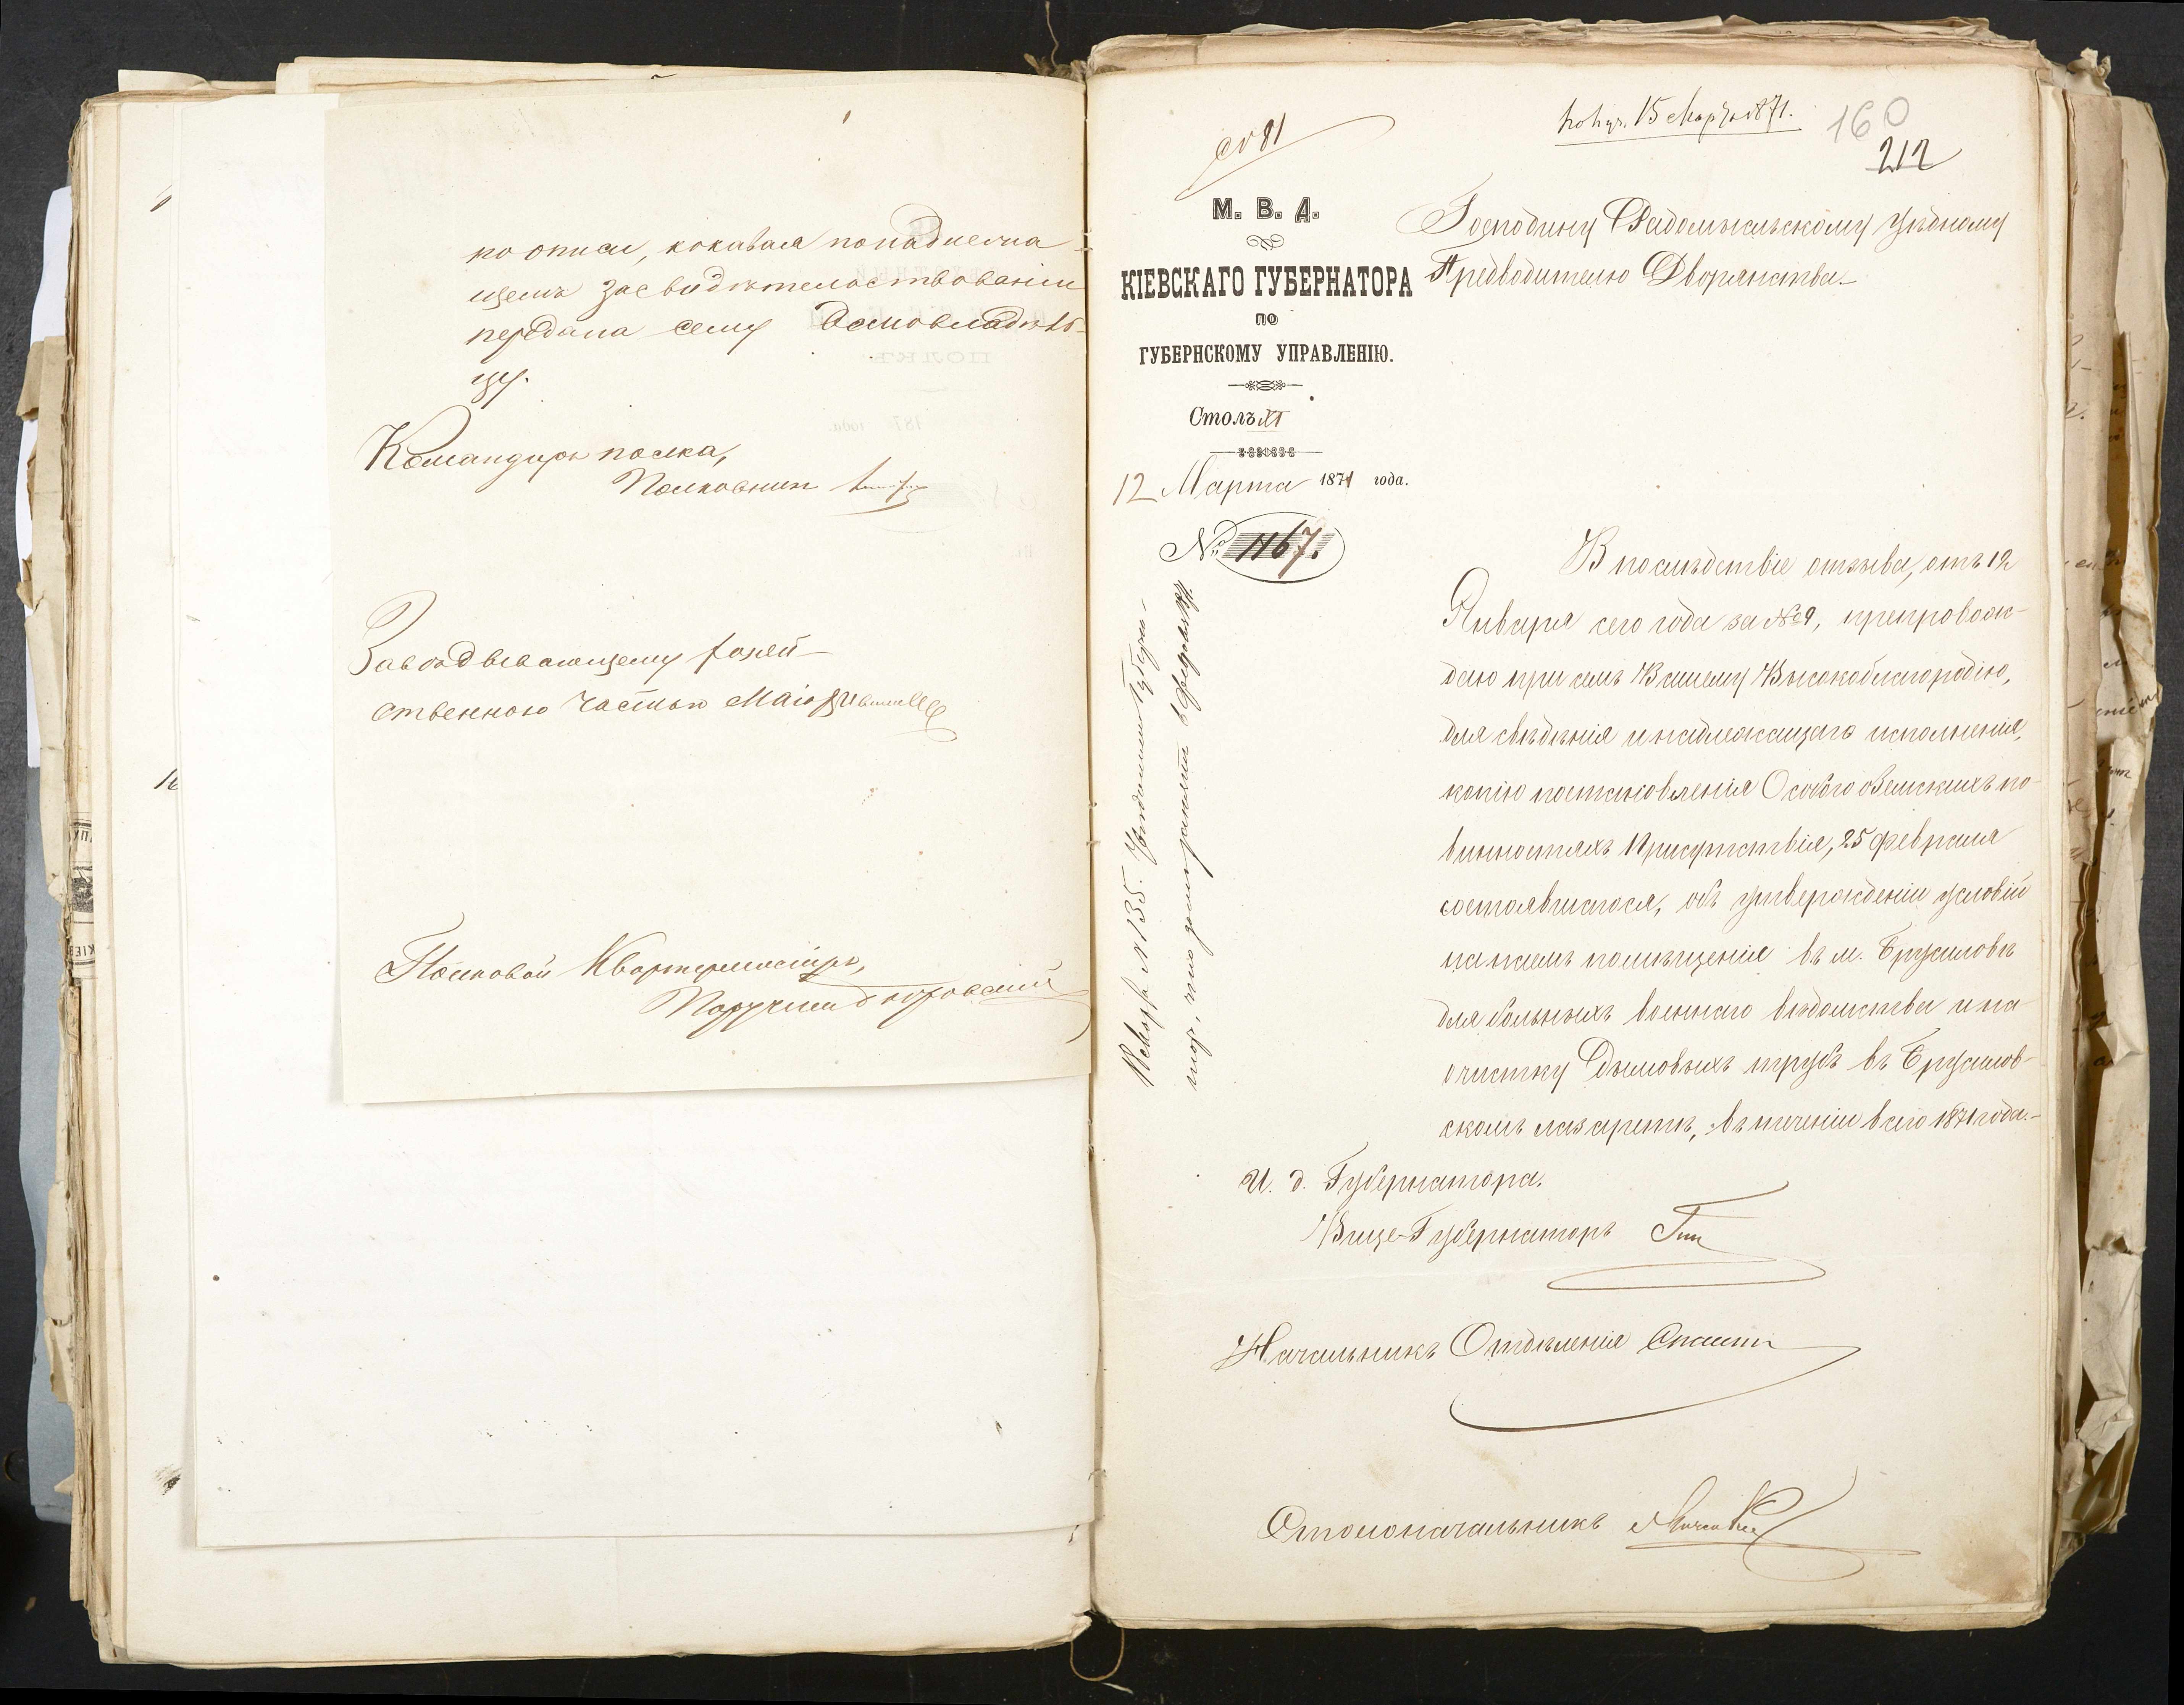 по описи, каковая по надлежа-
щемъ засвидѣтельствованіи
передана сему домовладѣль-
цу.
Командиръ полка,
Полковникъ
Завѣдывающему хозяй-
ственною частью Маіоръ
Полковой Квартермистръ,
Поручикъ
№ 81
Получ. 15 Марта 1871.
160
212
М. В. Д.
КІЕВСКАГО ГУБЕРНАТОРА
ПО
ГУБЕРНСКОМУ УПРАВЛЕНІЮ.
Столъ
12 Марта 1871 года.
№ 1167.
Господину Радомысльскому уѣздному
Предводителю Дворянства
Въ послѣдствіе отзыва, отъ 12
Января сего года за №9, препровож-
даю при семъ Вашему Высокоблагородію,
для свѣдѣнія и надлежащаго исполненія,
копію постановленія Особаго о Земскихъ по-
винностяхъ Присутствія, 25 февраля
состоявшагося, объ утвержденіи условій
на наемъ помѣщенія въ м. Брусиловѣ
для больныхъ военнаго вѣдомства и на
очистку дымовыхъ трубъ въ Брусилов-
скомъ лазаретѣ, въ теченіи всего 1871 года.-
И. д. Губернатора,
Вице-Губернаторъ
Начальникъ Отдѣленія
Столоначальникъ
18 Мар. №135.